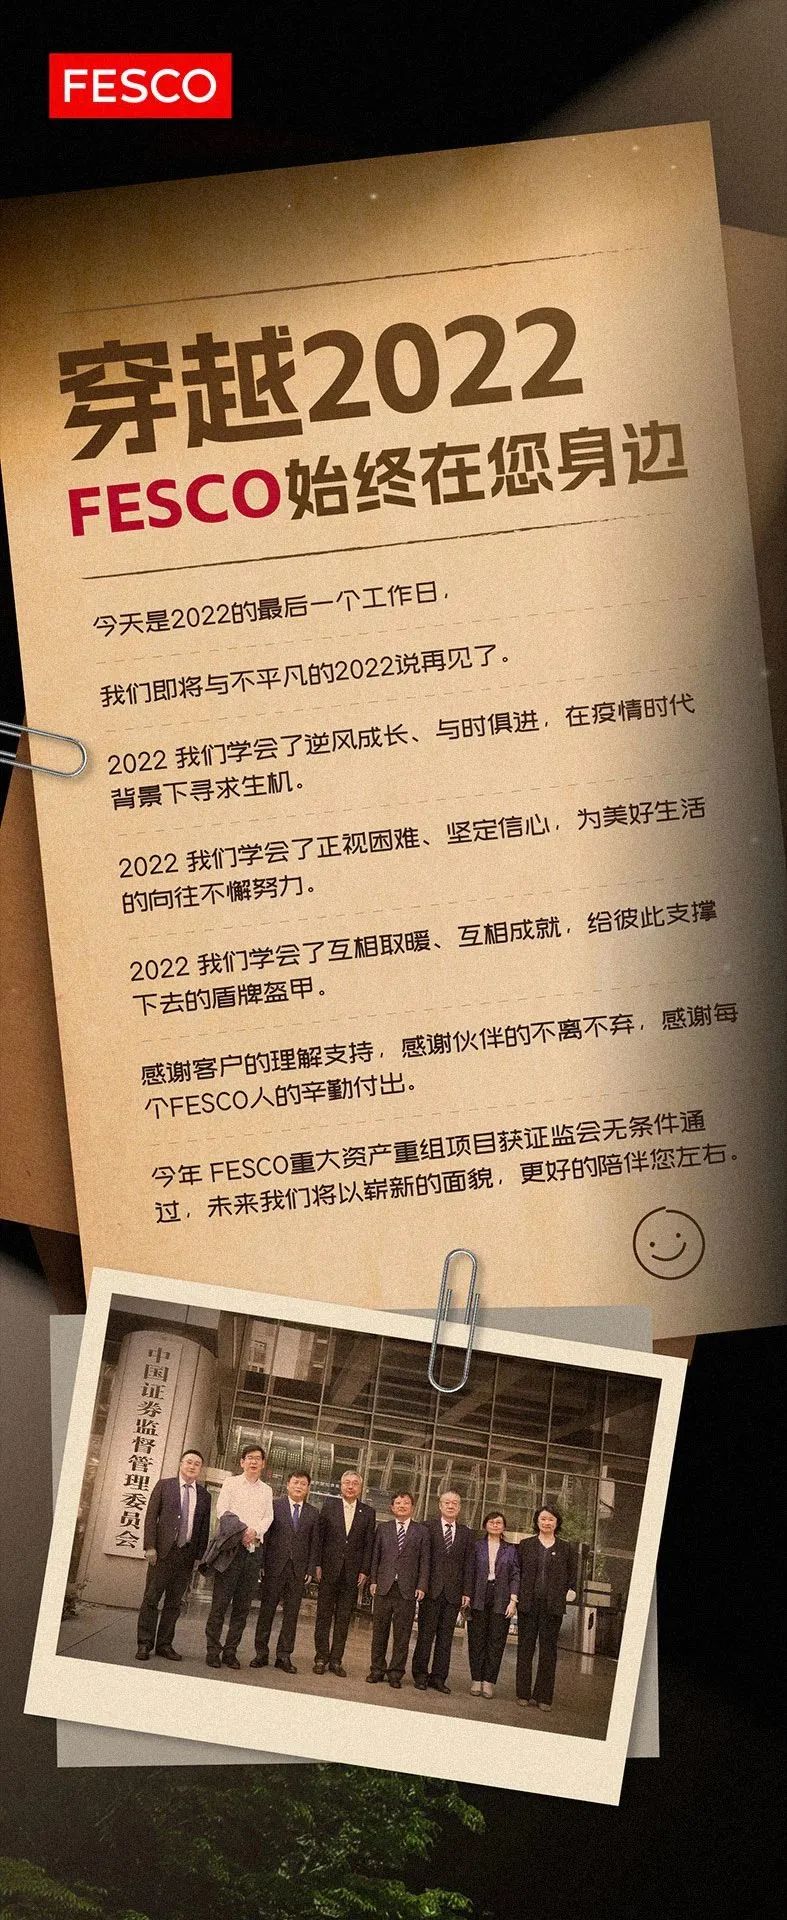 FESCO
穿越2022
FESCO始终在您身边
今天是2022的最后一个工作日，
我们即将与不平凡的2022说再见了。
2022 我们学会了逆风成长、与时俱进，在疫情时代
背景下寻求生机。
2022 我们学会了正视困难、坚定信心，为美好生活
的向往不懈努力。
2022 我们学会了互相取暖、互相成就，给彼此支撑
下去的盾牌盔甲。
感谢客户的理解支持，感谢伙伴的不离不弃，感谢每
个FESCO人的辛勤付出。
今年 FESCO重大资产重组项目获证监会无条件通
过，未来我们将以崭新的面貌，更好的陪伴您左右。
中国证券监督管理委员会